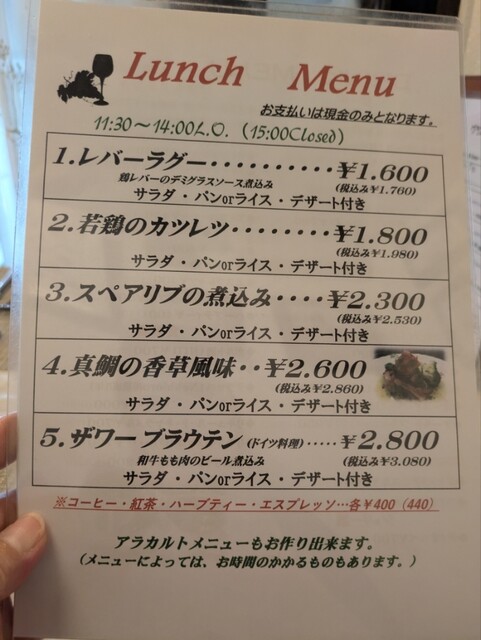 Lunch Menu
お支払いは現金のみとなります。
11:30～14:00L.O. (15:00Closed)
1.レバーラグー··········¥1.600
鶏レバーのデミグラスソース煮込み (税込み¥1.760)
サラダ・パンorライス・デザート付き
2.若鶏のカツレツ········¥1.800
(税込み¥1.980)
サラダ・パンorライス・デザート付き
3.スペアリブの煮込み····¥2.300
(税込み¥2.530)
サラダ・パンorライス・デザート付き
4.真鯛の香草風味··¥2.600
(税込み¥2.860)
サラダ・パンorライス・デザート付き
5.ザワーブラウテン(ドイツ料理)·····¥2.800
和牛もも肉のビール煮込み (税込み¥3.080)
サラダ・パンorライス・デザート付き
※コーヒー・紅茶・ハーブティー・エスプレッソ…各¥400（440）
アラカルトメニューもお作り出来ます。
（メニューによっては、お時間のかかるものもあります。）